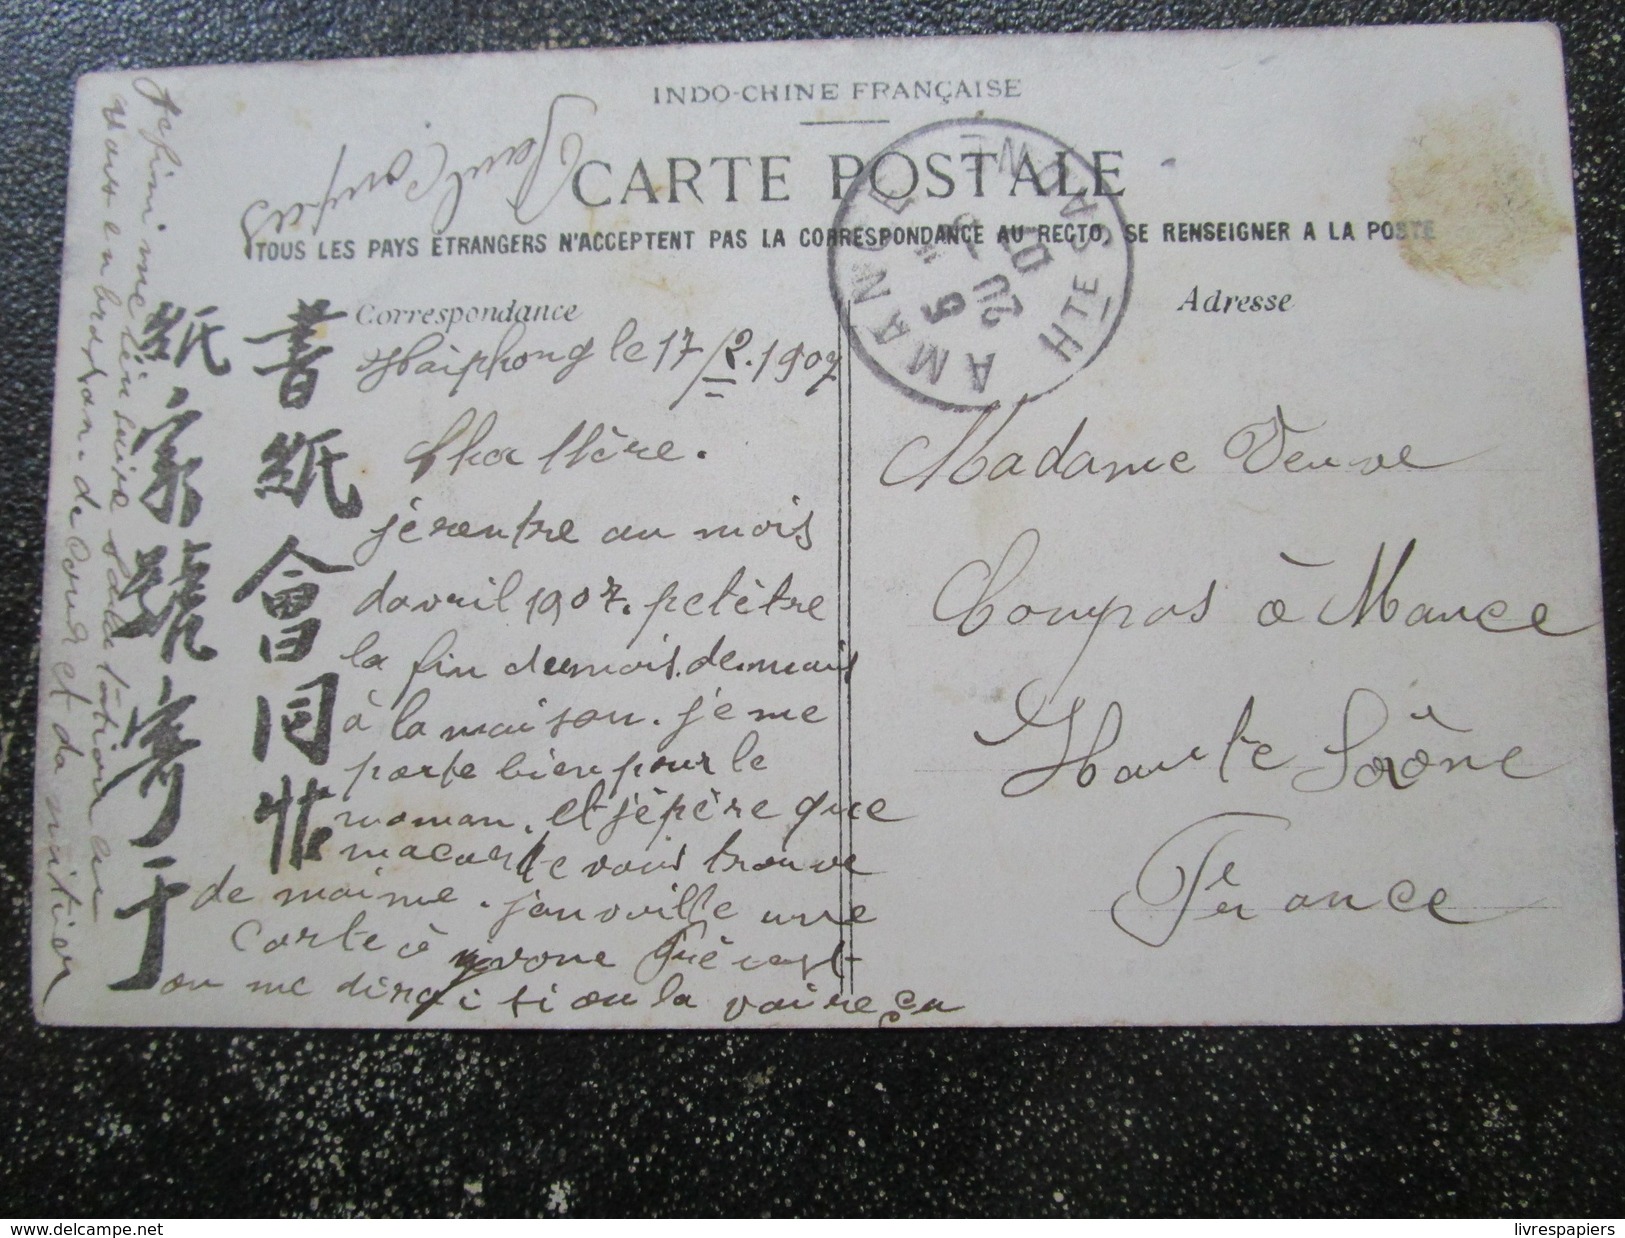 INDO-CHINE FRANÇAISE
CARTE POSTALE
TOUS LES PAYS ETRANGERS N'ACCEPTENT PAS LA CORRESPONDANCE AU RECTO, SE RENSEIGNER A LA POSTE
Correspondance
Adresse
AMANCE
HTE SAONE
Haiphong le 17/2.1907
Cher Mère.
je rentre au mois
davril 1907. petètre
la fin du mois de mais
à la maison. je me
porte bien pour le
moman. et jépère que
ma carte vous trouve
de maime. janvoille une
carte à yvone
on me dirai si on la vaire çu
je fini me
vous enbrassan. de Cour et
Madame Veuve
Coupas à Mance
Haute Saône
France
書紙會同
紙家號寄于
livrespapiers
www.delcampe.net